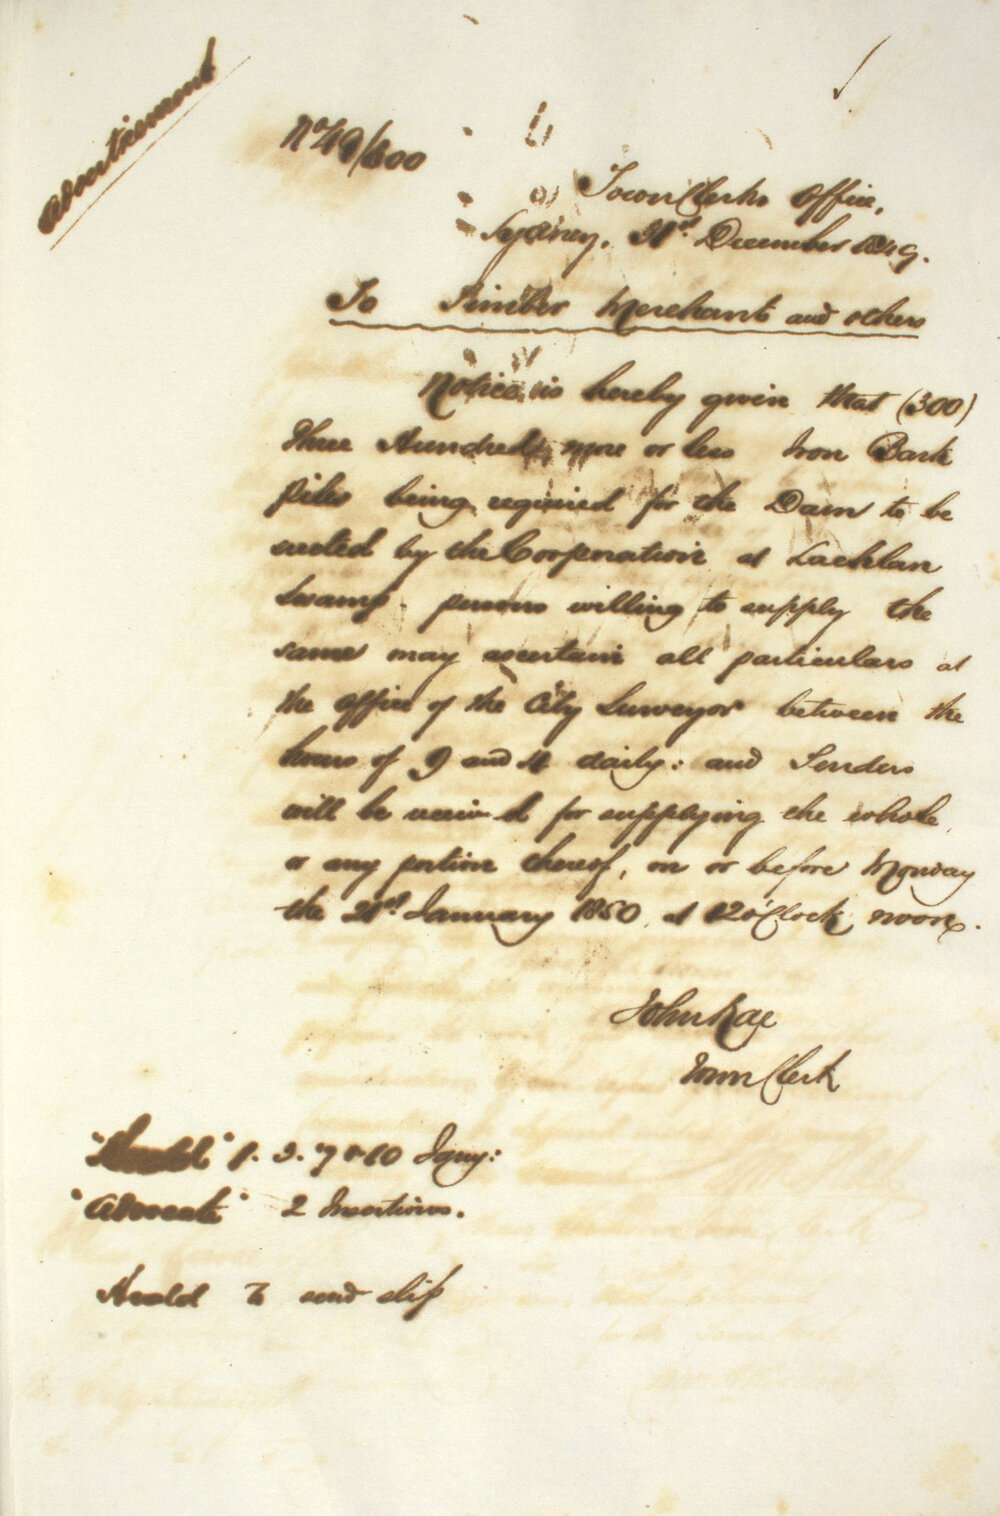 Advertisement
No 49/600
Town Clerks Office,
Sydney, 31st December 1849.
To Timber Merchants and others
Notice is hereby given that (300)
Three Hundred more or less Iron Bark
Piles being required for the Dam to be
erected by the Corporation at Lachlan
Swamp persons willing to supply the
same may ascertain all particulars at
the Office of the City Surveyor between the
hours of 9 and 4 daily: and Tenders
will be received for supplying the whole
or any portion thereof, on or before Monday
the 21st January 1850 at 12 o'Clock noon.
John Rae
Town Clerk
"Herald" 1. 3. 7 & 10 Jany:
"Advocate" 2 Insertions.
Herald to send slip